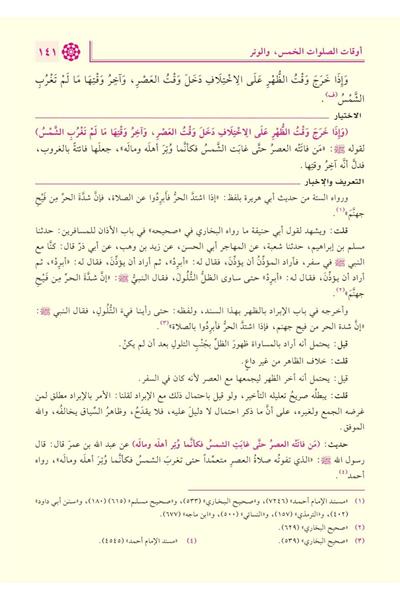 أوقات الصلوات الخمس، والوتر ١٤١
وَإِذَا خَرَجَ وَقْتُ الظُّهْرِ عَلَى الِاخْتِلَافِ دَخَلَ وَقْتُ العَصْرِ، وَآخِرُ وَقْتِهَا مَا لَمْ تَغْرُبِ
الشَّمْسُ (ف).
الاختيار
(وَإِذَا خَرَجَ وَقْتُ الظُّهْرِ عَلَى الِاخْتِلَافِ دَخَلَ وَقْتُ العَصْرِ، وَآخِرُ وَقْتِهَا مَا لَمْ تَغْرُبِ الشَّمْسُ)
لقوله ﷺ: «مَن فاتَتْه العصرُ حتَّى غابَت الشَّمسُ فكأنَّما وُتِرَ أهلَه ومالَه»، جعلَها فائتةً بالغروب،
فدلَّ أنَّه آخرُ وقتِها.
التعريف والإخبار
ورواه الستة من حديث أبي هريرة بلفظ: «إذا اشتدَّ الحرُّ فأبرِدُوا عن الصلاة، فإنَّ شدَّةَ الحرِّ مِن فَيْحِ
جهنَّمَ»(١).
قلت: ويشهد لقول أبي حنيفة ما رواه البخاري في «صحيحه» في باب الأذان للمسافرين: حدثنا
مسلم بن إبراهيم، حدثنا شعبة، عن المهاجر أبي الحسن، عن زيد بن وهب، عن أبي ذرّ قال: كنَّا مع
النبي ﷺ في سفرٍ، فأراد المؤذِّنُ أن يؤذِّنَ، فقال له: «أبرِدْ»، ثم أراد أن يؤذّنَ، فقال له: «أبرِدْ»، ثم
أراد أن يؤذّنَ، فقال له: «أبرِدْ» حتى ساوى الظلُّ التُّلُولَ، فقال النبيُّ ﷺ: «إنَّ شدَّةَ الحرِّ مِن فَيْحِ
جهنَّمَ»(٢).
وأخرجه في باب الإبراد بالظهر بهذا السند، ولفظه: حتى رأينا فيءَ التُّلُولِ، فقال النبي ﷺ:
«إنَّ شدة الحر من فيح جهنم، فإذا اشتدَّ الحرُّ فأبرِدُوا بالصلاة»(٣).
قيل: يحتمل أنه أراد بالمساواة ظهورَ الظلِّ بجُنْبِ التلولِ بعد أن لم يكنْ.
قلت: خلاف الظاهر من غير داعٍ.
قيل: يحتمل أنه أخر الظهر ليجمعها مع العصر لأنه كان في السفر.
قلت: يبطلُه صريحُ تعليله التأخيرَ، ولو قيل باحتمال ذلك مع الإبراد لقلنا: الأمر بالإبراد مطلق لمن
غرضه الجمع ولغيره، على أنَّ ما ذكر احتمال لا دليلَ عليه، فلا يقدَحُ، وظاهرُ السِّياق يخالفُه، والله
الموفق.
حديث: (مَن فاتَتْه العصرُ حتَّى غابَتِ الشمسُ فكأنَّما وُتِرَ أهلَه ومالَه) عن عبد الله بن عمرَ قال: قال
رسول الله ﷺ: «الذي تفوتُه صلاةُ العصرِ متعمِّداً حتى تغرُبَ الشمسُ فكأنَّما وُتِرَ أهلَه ومالَه»، رواه
أحمد(٤).
(١) «مسند الإمام أحمد» (٧٢٤٦)، و«صحيح البخاري» (٥٣٣)، و«صحيح مسلم» (٦١٥) (١٨٠)، و«سنن أبي داود»
(٤٠٢)، و«الترمذي» (١٥٧)، و«النسائي» (٥٠٠)، و«ابن ماجه» (٦٧٧).
(٢) «صحيح البخاري» (٦٢٩).
(٣) «صحيح البخاري» (٥٣٩). (٤) «مسند الإمام أحمد» (٤٥٤٥).